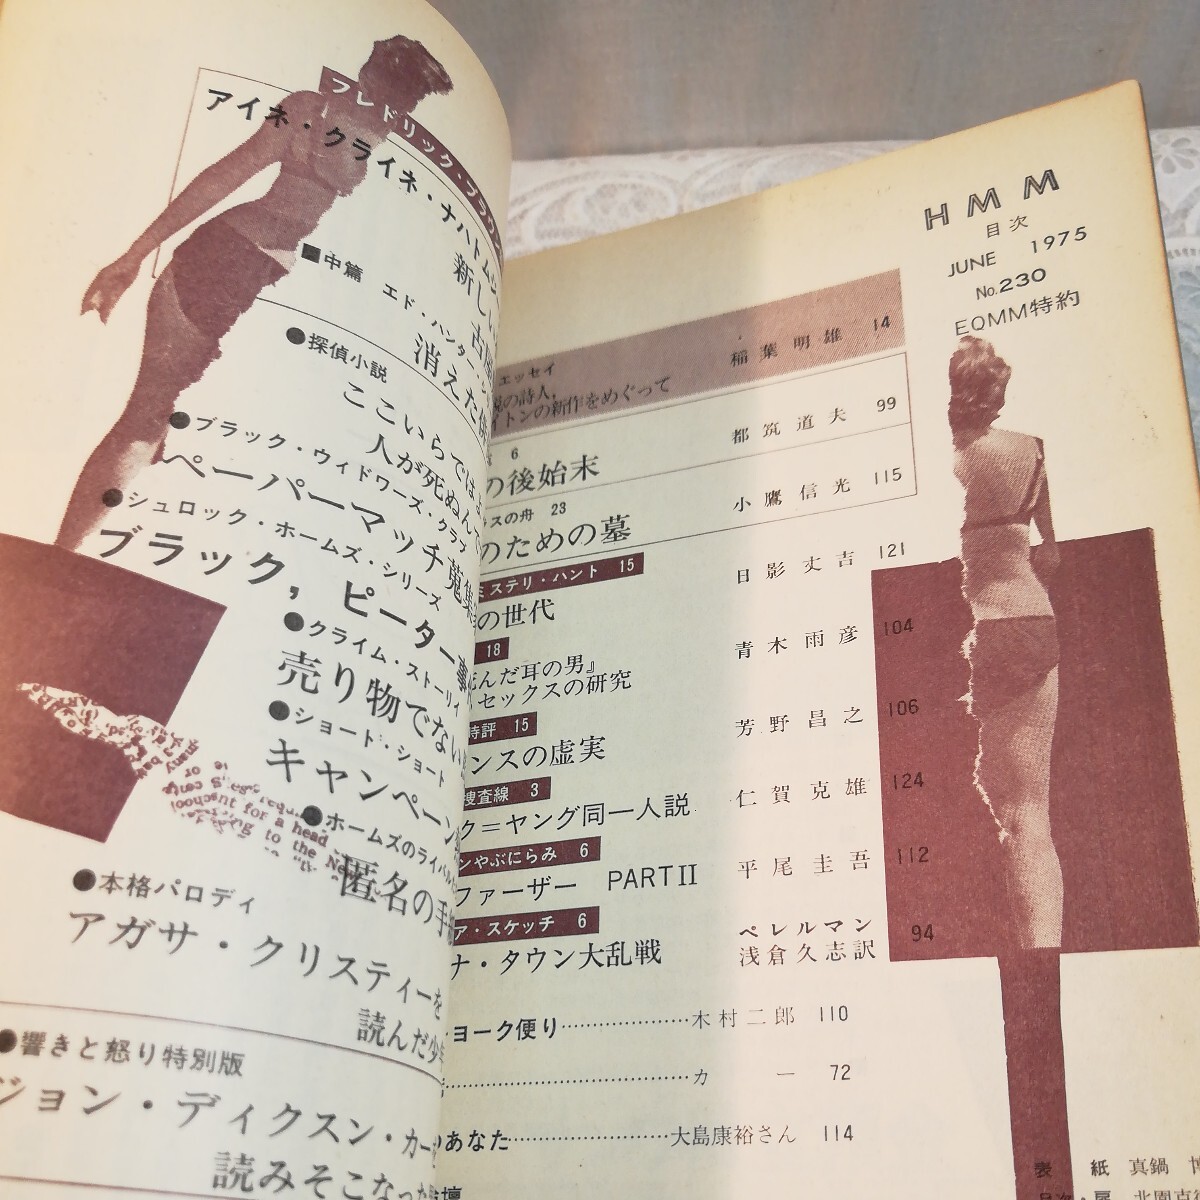 フレドリック・ブラウン
アイネ・クライネ・ナハトム
新しい
■中篇 エド・ハンター・シ
消えた
●探偵小説
ここいらでは
人が死ぬん
●ブラック・ウィドワーズ・クラブ
ペーパーマッチ蒐集
●シュロック・ホームズ・シリーズ
ブラック,ピーター事
●クライム・ストーリイ
売り物でない
●ショート・ショート
キャンペーン
●ホームズのライバル
匿名の手
●本格パロディ
アガサ・クリスティーを
読んだ少年
●響きと怒り特別版
ジョン・ディクスン・カーを
読みそこなった
many
or
for a head
to the New
HMM
目次
JUNE 1975
No.230
EQMM特約
エッセイ
の詩人,
イトンの新作をめぐって
稲葉明雄 14
6
の後始末
都筑道夫 99
スの舟 23
のための墓
小鷹信光 115
ミステリ・ハント 15
の世代
日影丈吉 121
18
死んだ耳の男』
セックスの研究
青木雨彦 104
時評 15
ンスの虚実
芳野昌之 106
捜査線 3
ク=ヤング同一人説
仁賀克雄 124
ンやぶにらみ 6
ファーザー PARTII
平尾圭吾 112
ア・スケッチ 6
ナ・タウン大乱戦
ペレルマン
浅倉久志訳 94
ヨーク便り…………………木村二郎 110
……………………カー 72
あなた……………………大島康裕さん 114
壇
表紙 真鍋博
目次・扉 北園克衛